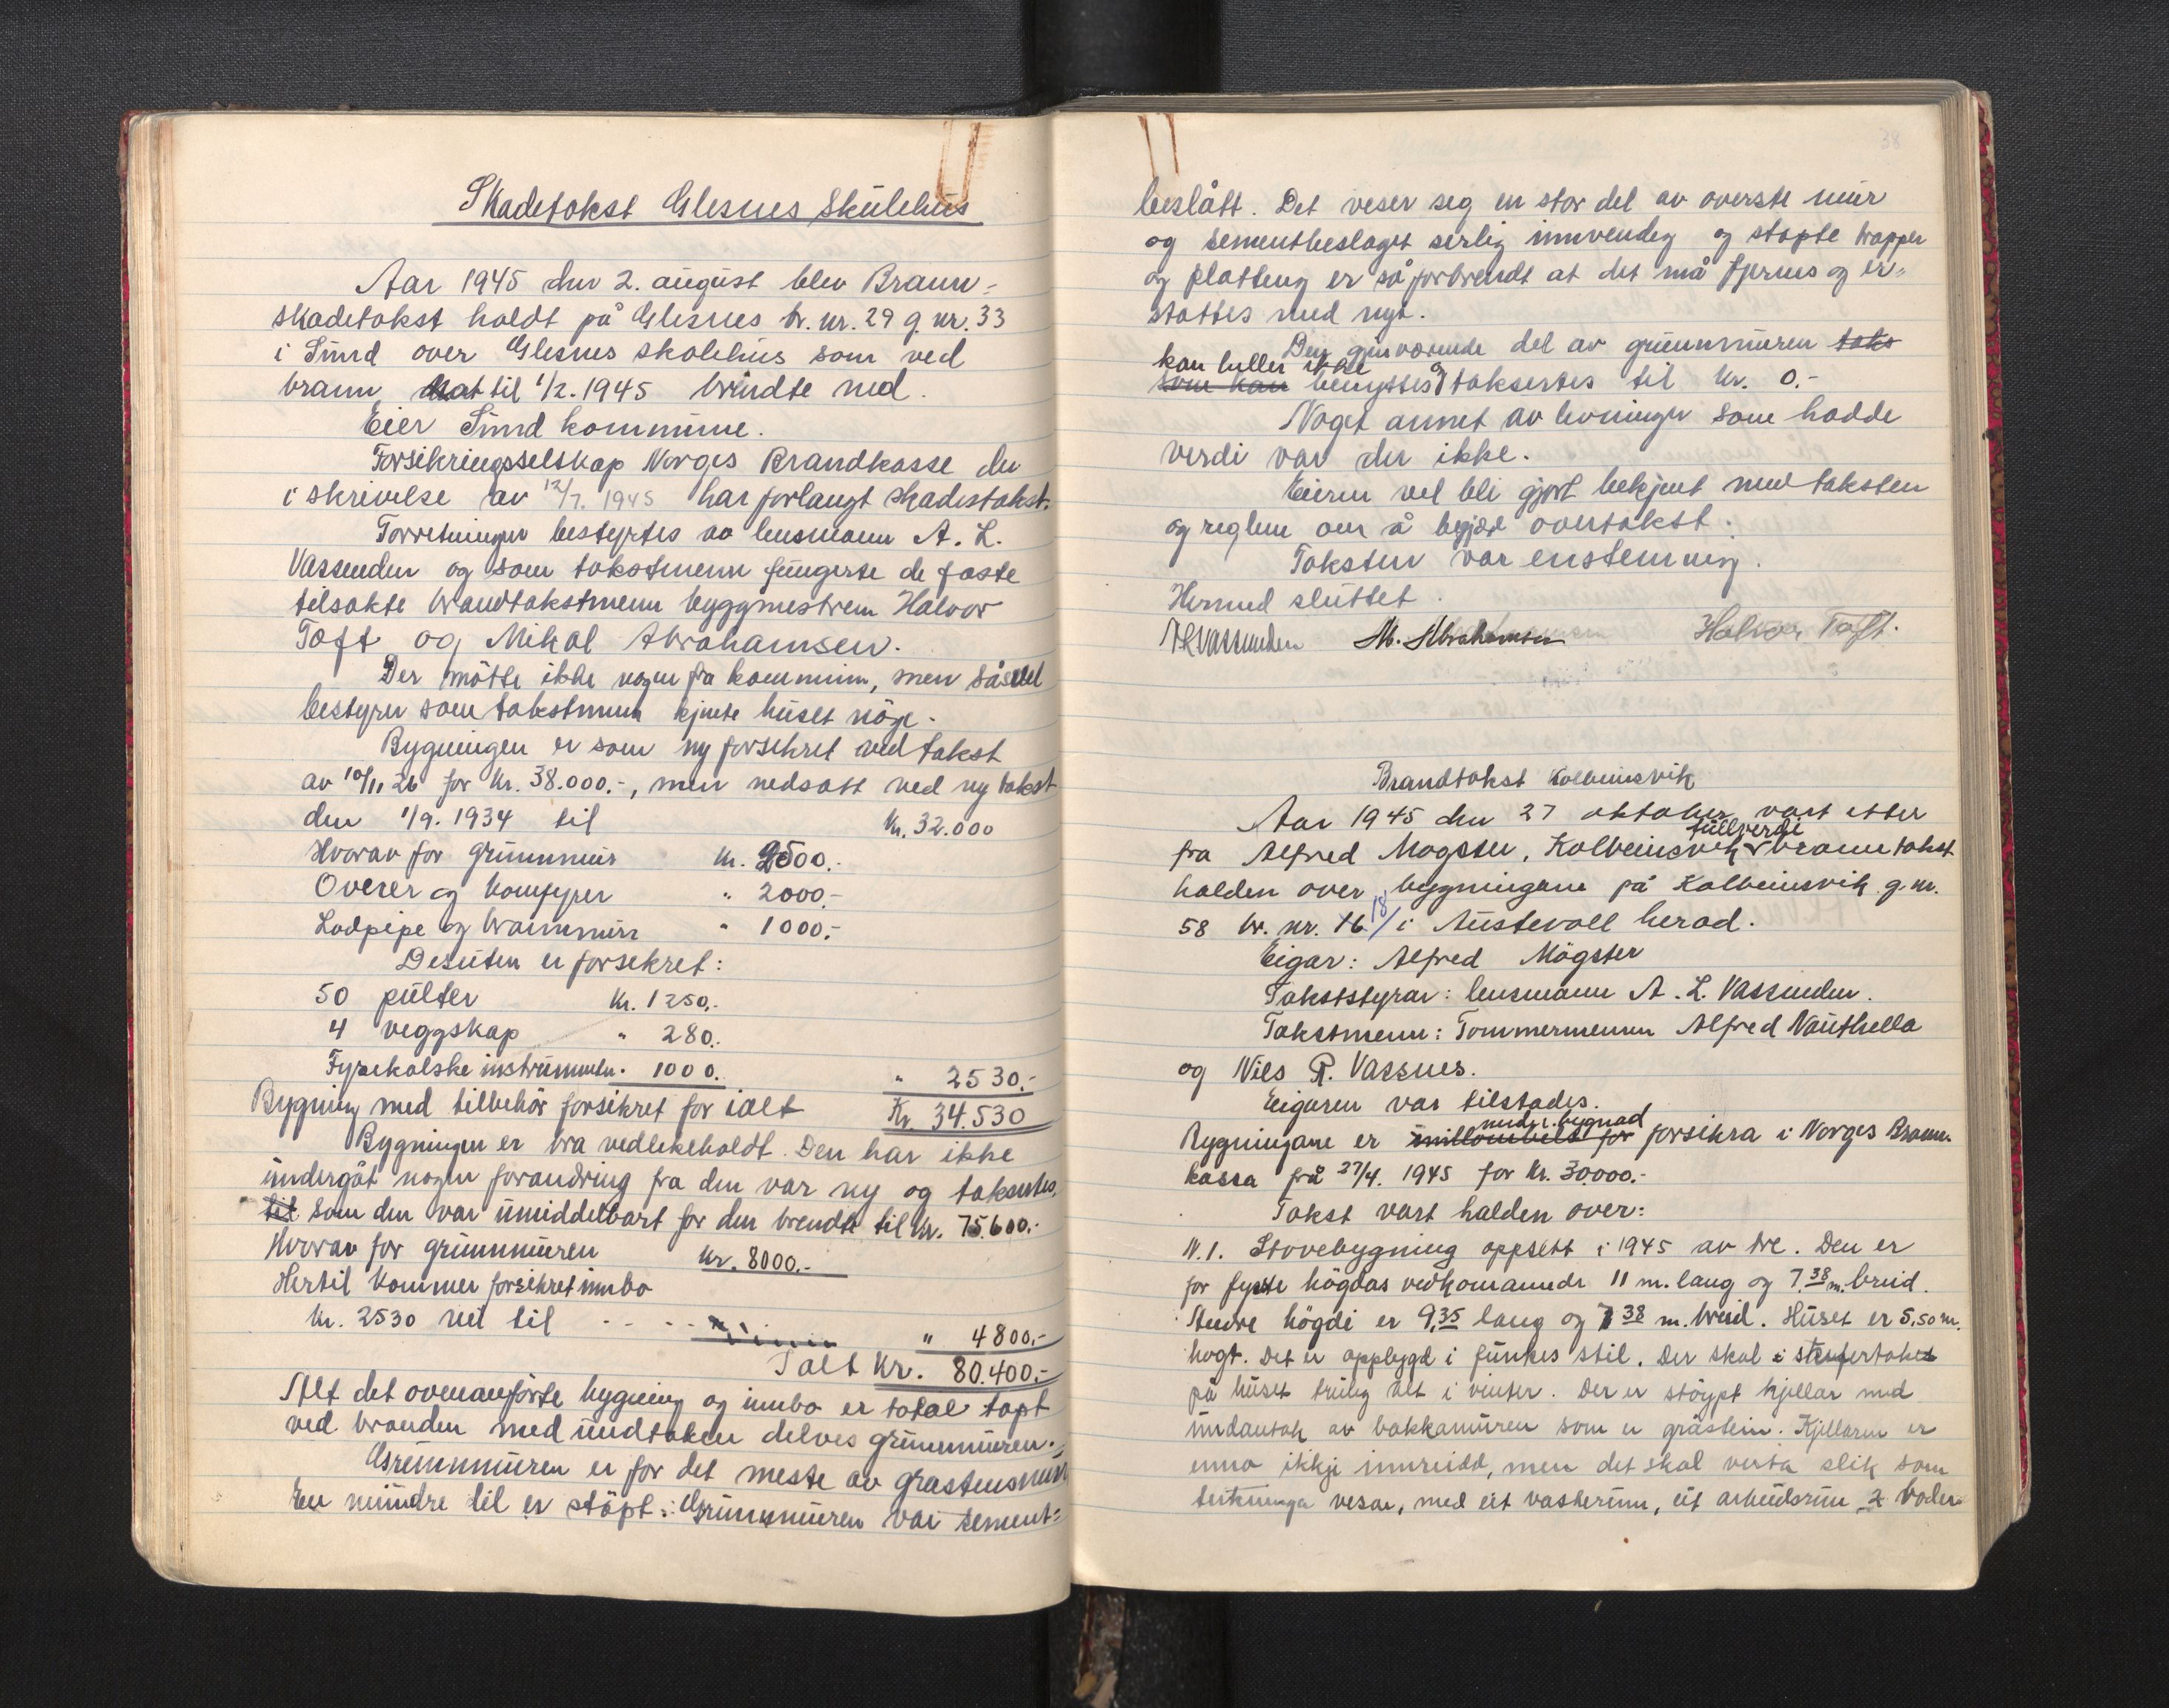 Skadetakst Glesnes skulehus
Aar 1945 den 2. august blev Brann-
skadetakst holdt på Glesnes br. nr. 29 g. nr. 33
i Sund over Glesnes skolehus som ved
brann natt til 1/2. 1945 brendte ned.
Eier Sund kommune.
Forsikringsselskap Norges Brandkasse der
i skrivelse av 12/7. 1945 har forlangt skadestakst.
Forretningen bestyrtes av lensmann A. L.
Vassenden og som takstmenn fungerte de faste
tilsatte brandtakstmenn byggmestrene Halvor
Toft og Mikal Abrahamsen.
Der mötte ikke nogen fra kommunen, men såvel
bestyrer som takstmenn kjente huset nöje.
Bygningen er som ny forsikret ved takst
av 10/11 26 for kr. 38.000.-, men nedsatt ved ny takst
den 1/9. 1934 til kr. 32.000
Hvorav for grunnmur kr. 2500.-
Ovner og komfyrer " 2000.-
Lodpipe og brannmur " 1000.-
Desuten er forsikret:
50 pulter kr. 1250,-
4 veggskap " 280.-
Fysikalske instrumenter. 1000. " 2530.-
Bygning med tilbehör forsikret for ialt Kr 34.530
Bygningen er bra vedlikeholdt. Den har ikke
undergåt nogen forandring fra den var ny og taksertes,
til som den var umiddelbart for den brendte til kr. 75.600.-
Hvorav for grunnmuren kr. 8000.-
Hertil kommer forsikret innbo
kr. 2530 ved til - - - - " 4800.-
Ialt kr. 80.400.-
Alt det ovenanförte bygning og innbo er total tapt
ved branden med undtaken delvis grunnmuren.
Grunnmuren er for det meste av grastensmur
En mindre del er stöpt. Grunnmuren var sement-
38
beslått. Det veser seg en stor del av overste mur
og sementbeslaget serlig innvendig og stopte trapper
og platting er så forbrendt at det må fjernes og er-
stattes med nyt.
Den genværende del av grunnmuren taks
kan heller ikke
som kan benyttes og taksertes til kr. 0.-
Noget annet av levninger som hadde
verdi var der ikke.
Eieren vel bli gjort bekjent med taksten
og reglene om å begjære overtakst.
Taksten var enstemmig.
Hermed sluttet.
ALVassenden M. Abrahamsen Halvor Toft.
Brandtakst Kolbeinsvik
Aar 1945 den 27 oktober vart etter
fullverdi
fra Alfred Mogster, Kolbeinsvik branntakst
halden over bygningane på Kolbeinsvik g. nr.
58 br. nr. 16 18/ i Austevoll herad.
Eigar: Alfred Mögster
Takststyrar: lensmann A. L. Vassenden.
Takstmenn: Tommermenn Alfred Nauthella
og Nils R. Vassnes.
Eigaren var tilstades.
under bygnad
Bygningane er for forsikra i Norges Brann-
kassa frå 27/4. 1945 for kr. 30.000.-
Takst vart halden over:
N. 1. Stovebygning oppsett i 1945 av tre. Den er
for fyrste högdas vedkomande 11 m. lang og 7.38 m. breid.
Andre högdi er 9,35 lang og 7 38 m. breid. Huset er 5,50 m.
hogt. Det er oppbygd i funkes stil. Der skal
på huset alt i vinter. Der er stöypt kjellar med
undantak av bakkamuren som er gråstein. Kjellaren er
enno ikkje innreidd, men det skal verta slik som
teikninga veser, med eit vaskerum, eit arbeidsrum 2 boder